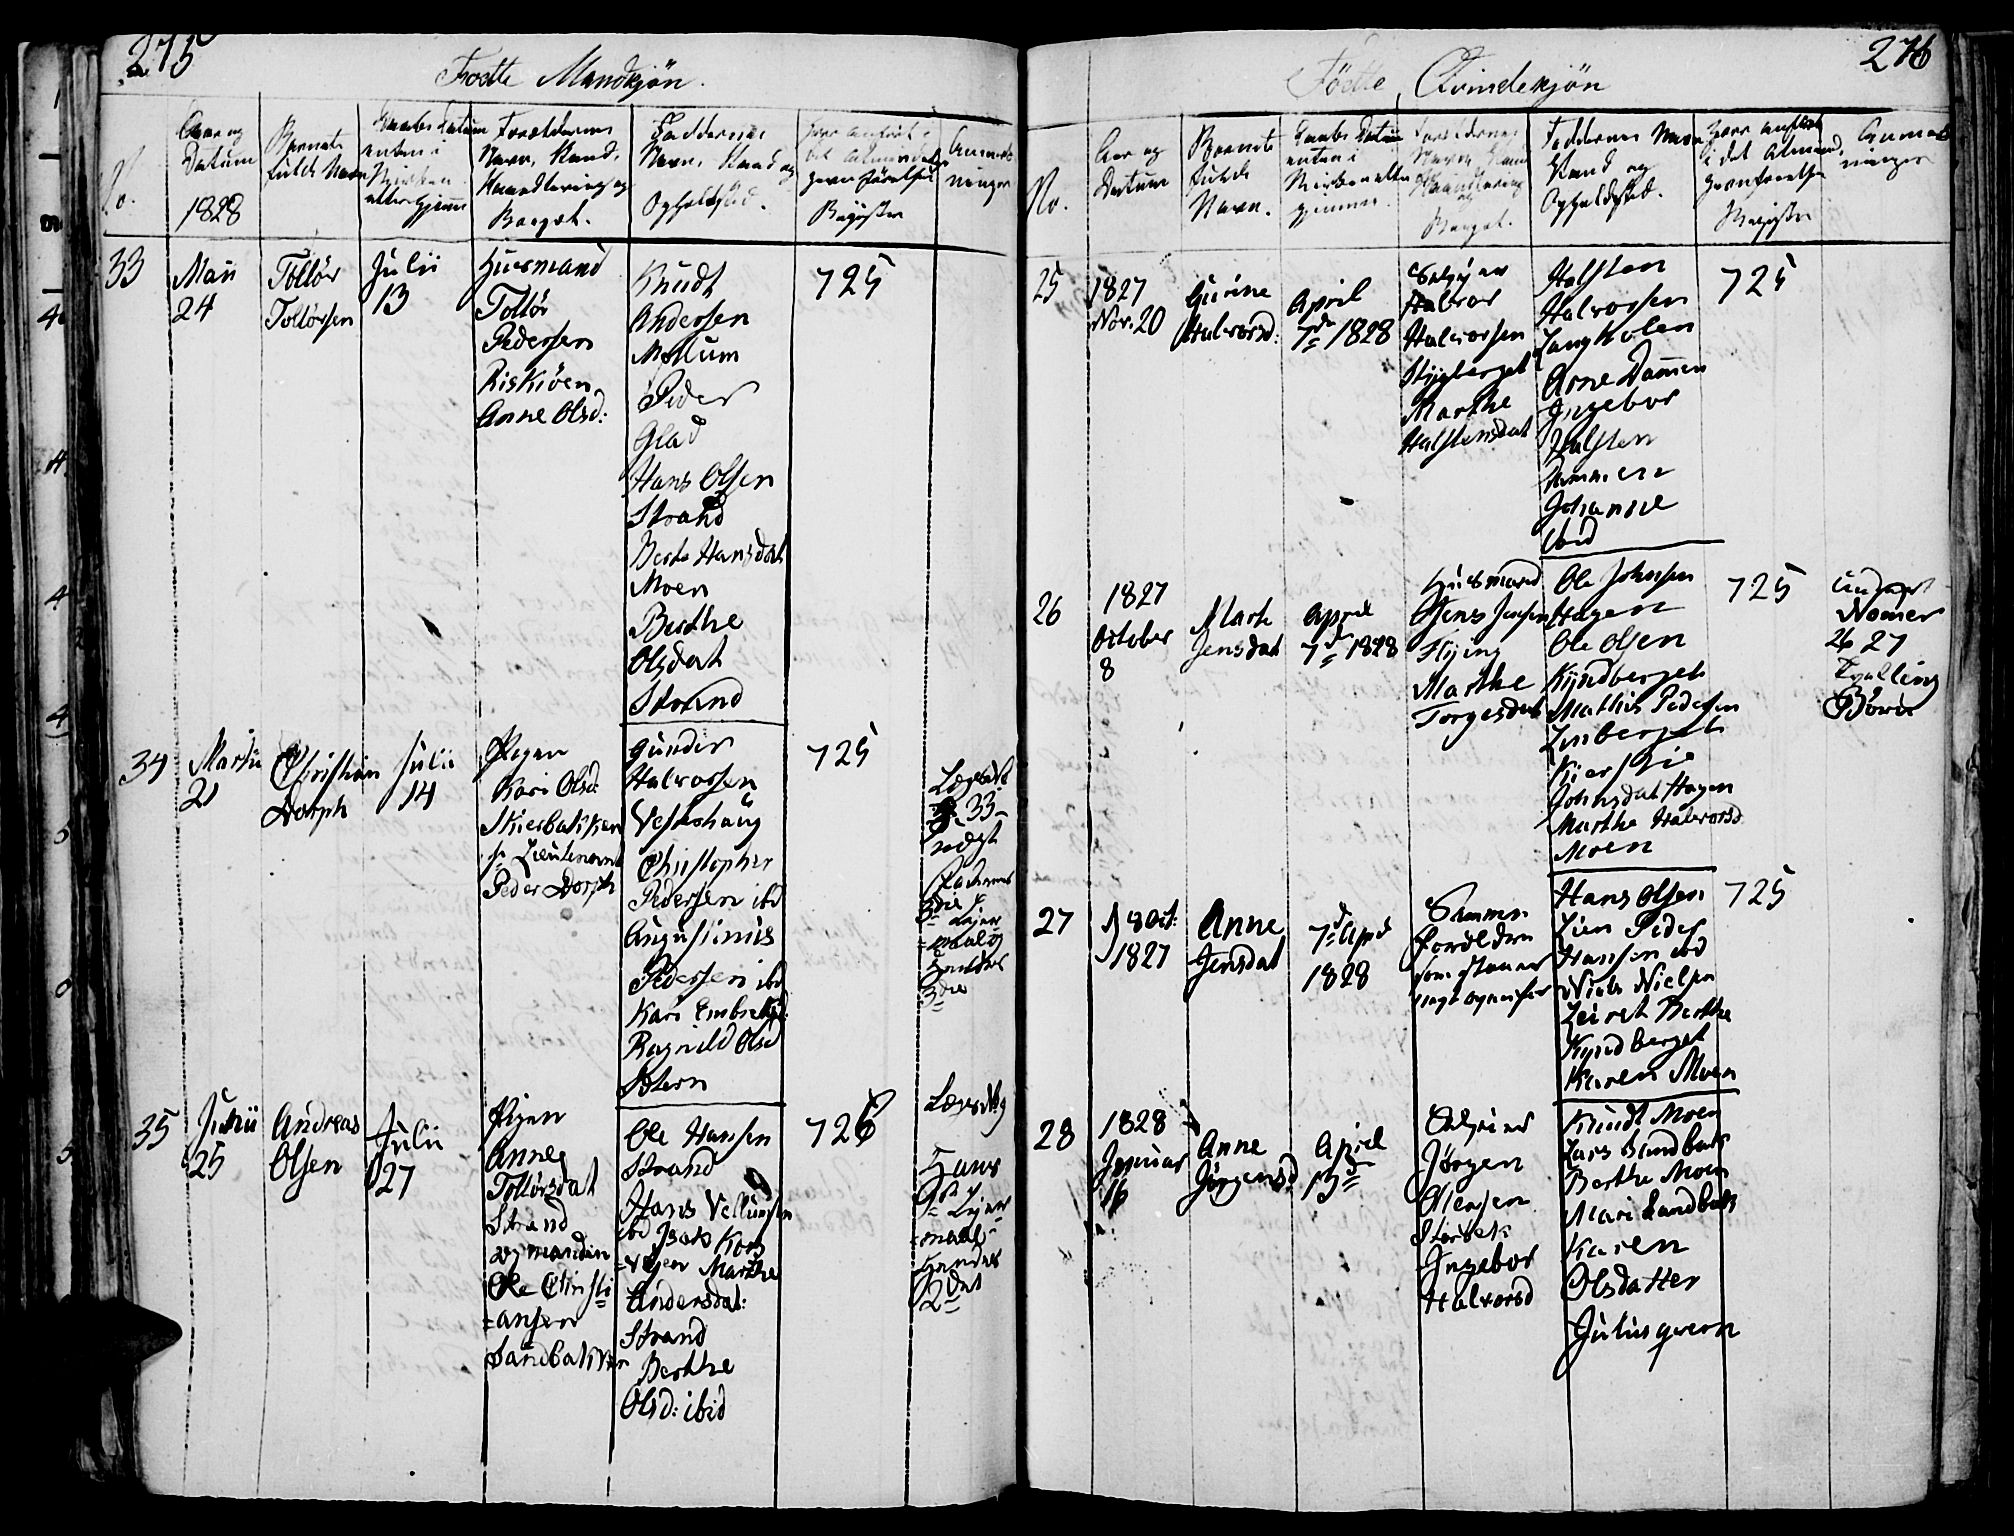 275
Fødte Mandkjøn.
No.
Aar og
Datum
1828
Barnets
fulde Navn
Daabs Datum
enten i
Kirken
eller hjemme
Forældrenes
Navn, Stand,
Haandtering og
Bopæl.
Faddernes
Navn, Stand og
Opholdsted.
Hvor anført i
det almindel.
Jevnførelses
Register
Anmærk
ninger
33
Maii
24
Tollør
Tollørsen
Julii
13
Huusmand
Tollør
Pedersen
Riskiöen
Anne Olsd:
Knudt
Andersen
Mellum
Peder
Glad
Hans Olsen
Strand
Berte Hansdat
Moen
Berthe
Olsdat
Strand
725
34
Martii
21
Christian
Dorph
Julii
14
Pigen
Kari Olsd.
Skierbakken
fr. Lieutenant
Peder Dorph
Gunder
Halvorsen
Vesterhaug
Christopher
Pedersen ibd
Augustinus
Pedersen ibd
Kari Embretsd:
Ragnild Olsd
725
33
3die
Leier
=maal og
Hendes
3die
35
Junii
25
Andreas
Olsen
Julii
27
Pigen
Anne
Tollørsdat
Strand
og manden
Ole Christi
=ansen
Sandbakken
Ole Hansen
Strand
Hans Vellumsen
ibd Isak Kors
=vejen Marthe
Andersdat:
Strand
Berthe
Olsd: ibid
726
Hans
Leier
=maal
Hendes
2det
276
Fødte Qvindekjøn
No.
Aar og
Datum
Barnets
fulde
Navn.
Daabs Datum
enten i
Kirken eller
hjemme.
Forældrenes
Navn Stand
Haandtering
og
Bopæl.
Faddernes Navn
Stand og
Opholdsted.
Hvor anført
i det Almind.
Jevnførelses
Register
Anmærk
ninger
25
1827
Nov. 20
Gurine
Halvorsd:
April
7de 1828
Halvor
Halvorsen
Stygberget
Marthe
Halstensdat
Halsten
Halvorsen
Langholen
Arne Damen
Ingebor
Halsten
Johanne
ibid
725
26
1827
October
8
Marte
Jensdat
April
7de 1828
Huusmand
Jens Jensen
Flying
Marthe
Torgersdat
Ole Johnsen
Hagen
Ole Olsen
Kyndberget
Mathis Pedersen
Linberget
Kierstie
Johnsdat Hagen
Marthe Halvorsd.
Moen
725
Nomer
26 27
Tvilling
Børn
27
8 Oct:
1827
Anne
Jensdat
7de Apr
1828
Samme
Forældre
som staaer
Hans Olsen
Lien Peder
Hansen ibd
Niels Nielsen
Leiret Berthe
Kyndberget
Karen Moen
725
28
1828
Januar
16
Anne
Jørgensd
April
13de
Jørgen
Olensen
Ingebor
Halvorsd
Knudt Moen
Lars Sundbak
Berthe Moen
Mari Sandbak
Karen
Olsdatter
Juliusqvern